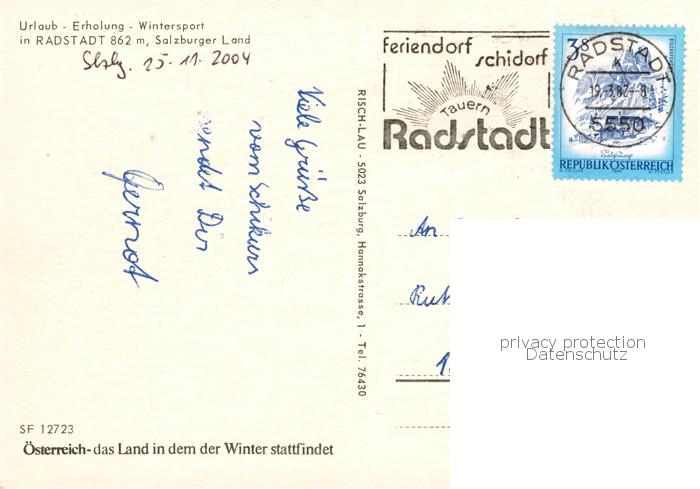 Urlaub - Erholung - Wintersport
in RADSTADT 862 m, Salzburger Land
Slzbg. 25.11.2004
Viele Grüße
vom Schikurs
sendet Dir
Gernot
SF 12723
Österreich-das Land in dem der Winter stattfindet
RISCH-LAU - 5023 Salzburg, Hannakstrasse, 1 - Tel. 76430
feriendorf
schidorf
Tauern
Radstadt
RADSTADT
19.3.82-8
5550
3S
REPUBLIK ÖSTERREICH
An
Rut
1
privacy protection
Datenschutz